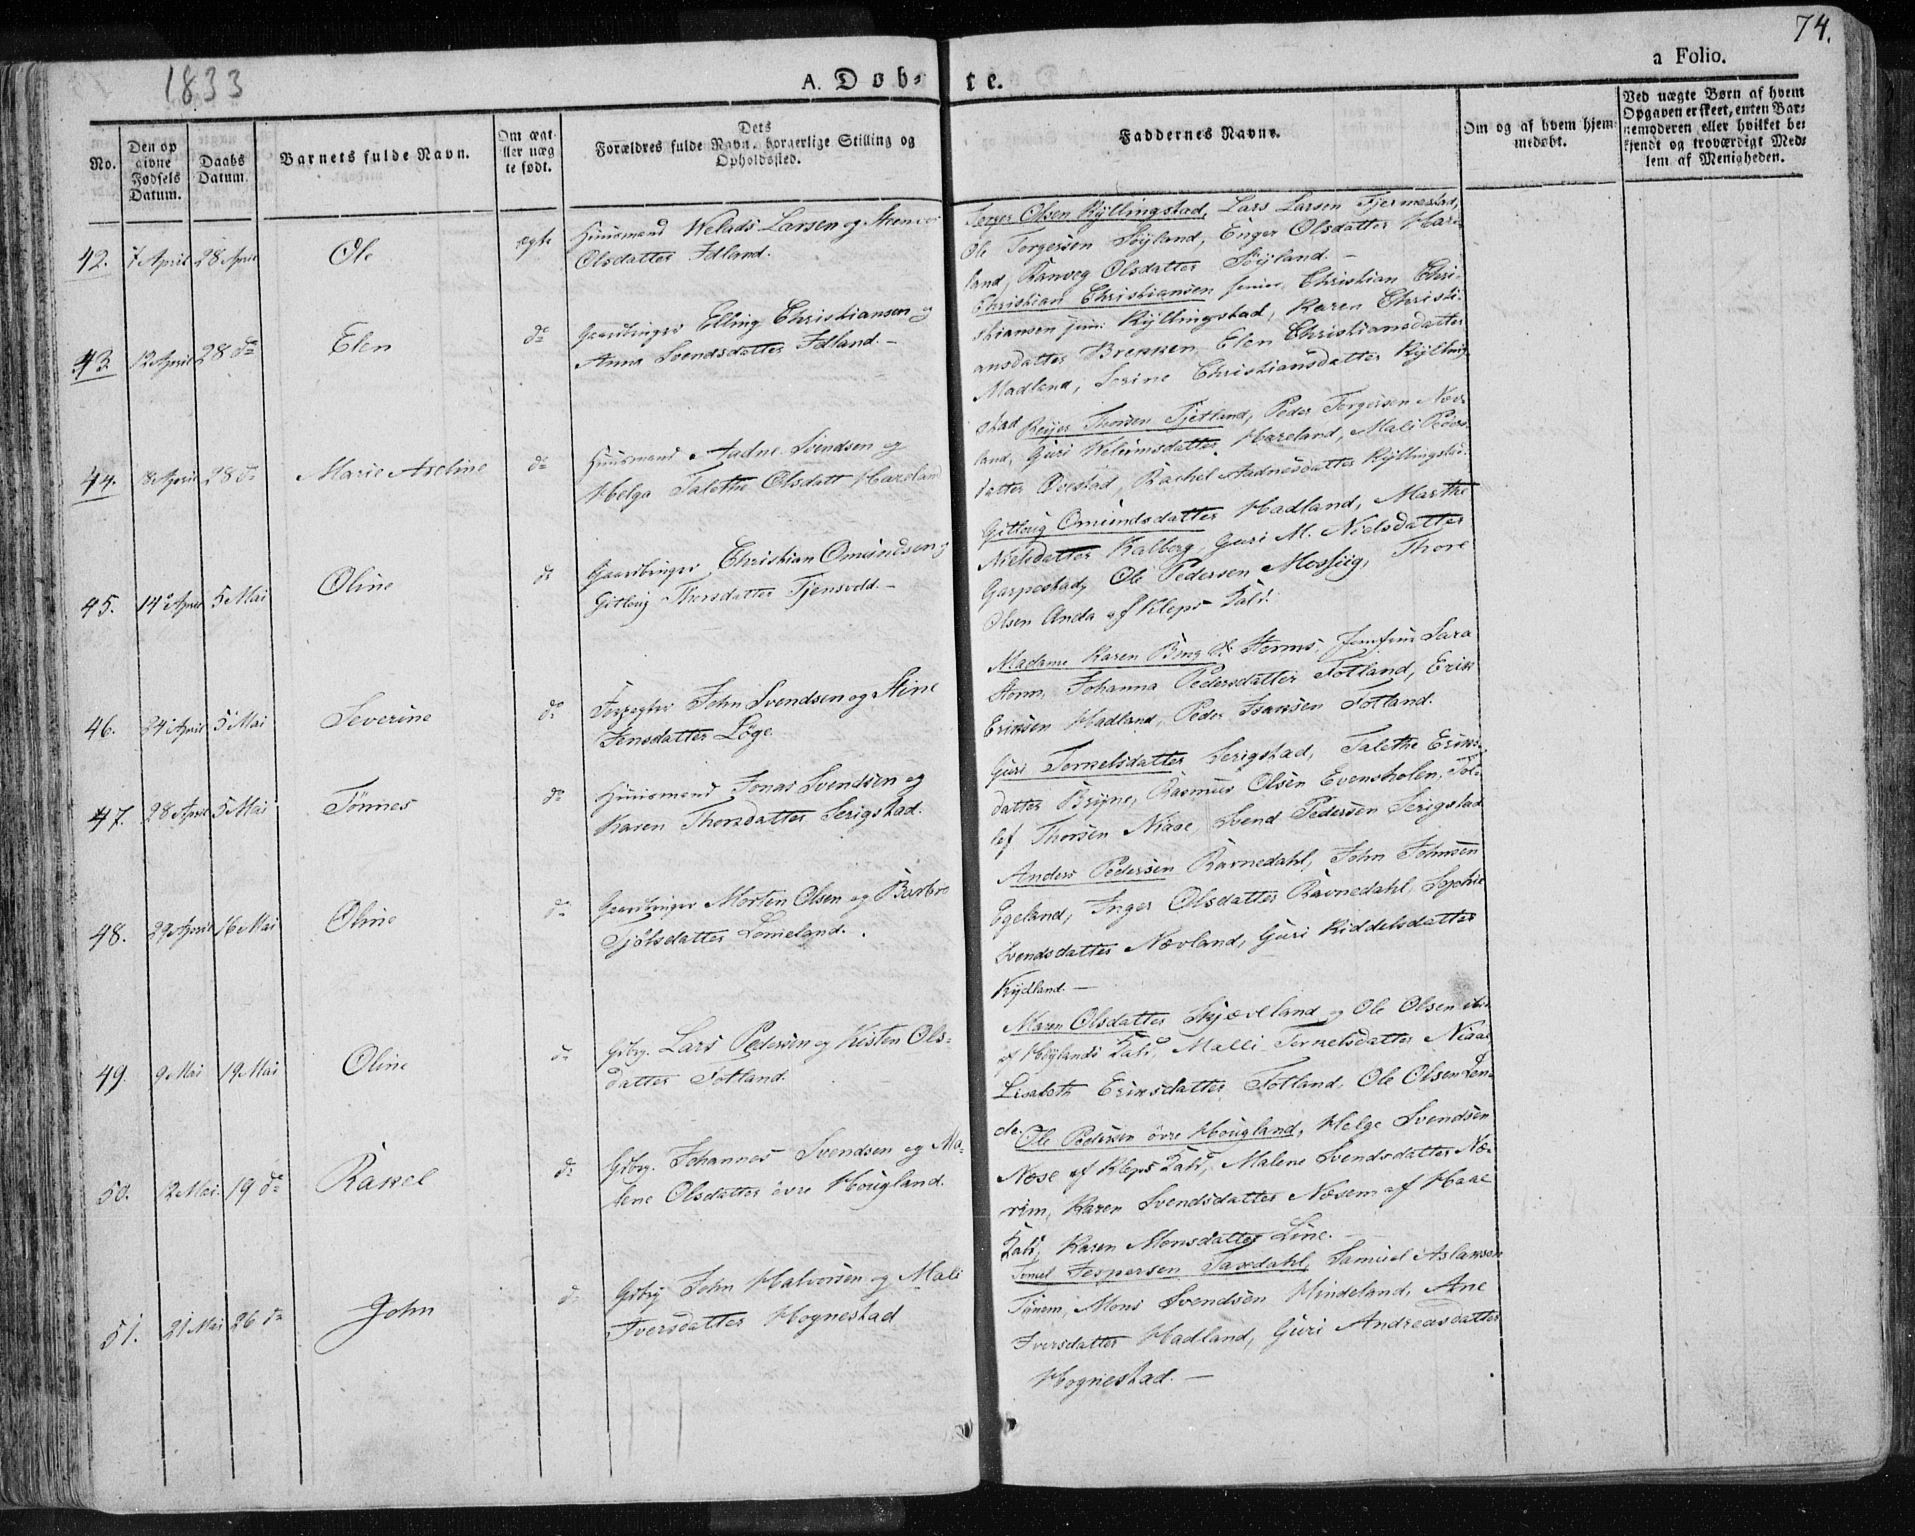 74.
a Folio.
1833
A. Døb-
te.
No.
Den op
givne
Fødsels
Datum.
Daabs
Datum.
Barnets fulde Navn.
Om ægt-
ller uæg
te født.
Dets
Forældres fulde Navn, borgerlige Stilling og
Opholdssted.
Faddernes Navne.
Om og af hvem hjem-
medøbt.
Ved uægte Børn af hvem
Opgaven er skeet, enten Bar-
nemoderen eller hvilket be-
kjendt og troværdigt Med-
lem af Menigheden.
42. 7 April 28 April Ole ægte Huusmand Welads Larsen og
Olsdatter Idland.
Olsen Kyllingstad, Lars Larsen Tjermestad,
Ole Torgersen Söyland, Enger Olsdatter Hare-
land, Ranveg Olsdatter Söyland. —
43. 12 April 28 do Elen do Gaardbruger Elling Christiansen og
Anna Svendsdatter Idland. —
Christian Christiansen senior, Christian Chri-
stiansen jun: Kyllingstad, Karen Christi-
ansdatter Brekken, Elen Christiansdatter
Madland, Serine Christiansdatter Kylling-
stad
44. 18 April 28 do Marie Axeline do Huusmand Aadne Svendsen og
Helga Talethe Olsdatt Hareland
Reijer Thorsen Tjetland, Peder Torgersen Nev-
land, Guri Helismsdatter Hareland, Mali Peders-
datter Ovestad, Rachel Aadnesdatter Kyllingstad.
45. 14de April 5 Mai Oline do Gaardbruger Christian Omundsen og
Gitloug Thorsdatter Tjensvold. —
Gitloug Omundsdatter Hadland, Marthe
Nielsdatter Kalberg, Guri M. Nielsdatter
Garpestad, Ole Pedersen Mossiig, Thore
Olsen Anda af Kleps Kald.
46. 24de April 5 Mai Severine do Forpagter John Svendsen og Stine
Jensdatter Löge
Madame Karen Bing Storms, Jomfru Sara
Storm, Johanna Pedersdatter Fotland, Erik
Eriksen Hadland, Peder Isaksen Fotland.
47. 28 April 5 Mai Tönnes do Huusmand Jonas Svendsen og
Karen Thorsdatter Serigstad.
Guri Torkelsdatter Serigstad, Talethe Eriks-
datter Bryne, Rasmus Olsen Evensholen, Tol-
lef Thorsen Niaae, Svend Pedersen Serigstad
48. 29 April 16 Mai Oline do Gaardbruger Morten Olsen og Barbro
Tjölsdatter Lomeland.
Anders Pedersen Ravnedahl, John Johnsen
Egeland, Inger Olsdatter Ravnedahl, Sophie
Svendsdatter Nævland, Guri Kiddelsdatter
Kydland. —
49. 9 Mai 19 Mai Oline do Gbrg. Lars Pedersen og Kisten Ols-
datter Fotland.
Maren Olsdatter Skjæveland og Ole Olsen ibid.
af Höylands Kald, Malli Torkelsdatter Niaae,
Lisabeth Eriksdatter Fotland, Ole Olsen Len-
de.
50. 12 Mai 19 do Rakel do Gbrg. Johannes Svendsen og Ma-
lene Olsdatter övre Hougland.
Ole Pedersen övre Hougland, Helge Svendsen
Næse af Kleps Kald, Malene Svendsdatter Næ-
rim, Karen Svendsdatter Næsem af Haae
Kald, Karen Monsdatter Line. —
51. 21 Mai 26 do John do Gbrg John Halvorsen og Mali
Iversdatter Hognestad
Jespersen Taxdahl, Samuel Aslaksen
Tunem, Mons Svendsen Mindeland, Ane
Iversdatter Hadland, Guri Andreasdatter
Hognestad. —